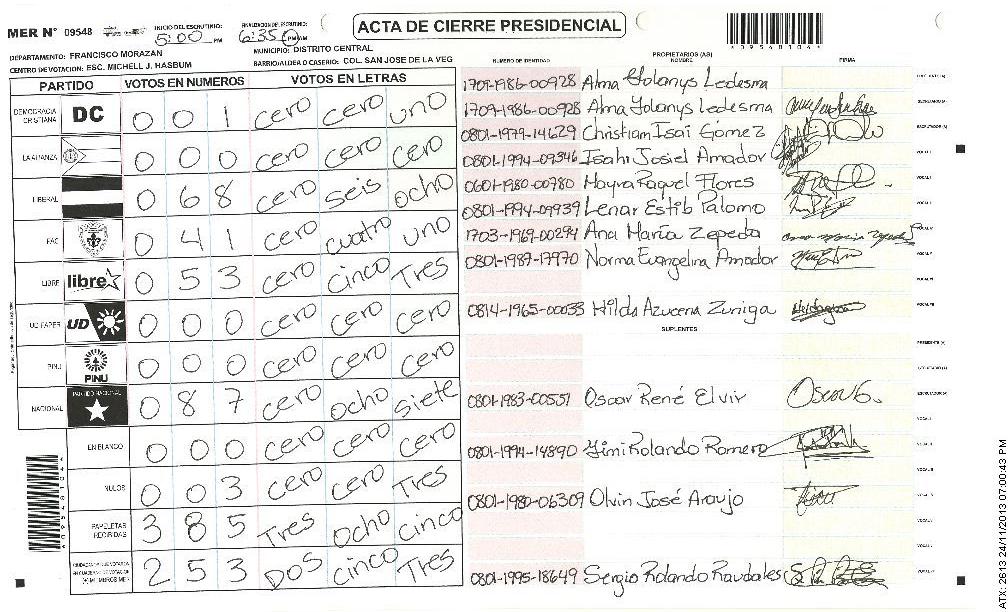 MER N° 09548
INICIO DEL ESCRUTINIO: 5:00 PM
FINALIZACION DEL ESCRUTINIO: 6:35 PM AM
ACTA DE CIERRE PRESIDENCIAL
*09548104*
DEPARTAMENTO: FRANCISCO MORAZAN
MUNICIPIO: DISTRITO CENTRAL
CENTRO DE VOTACION: ESC. MICHELL J. HASBUM
BARRIO/ALDEA O CASERIO: COL. SAN JOSE DE LA VEG
PARTIDO VOTOS EN NUMEROS VOTOS EN LETRAS
DEMOCRACIA CRISTIANA DC 0 0 1 cero cero uno
LA ALIANZA 0 0 0 cero cero cero
LIBERAL 0 6 8 cero seis ocho
FAC 0 4 1 cero cuatro uno
LIBRE libre 0 5 3 cero cinco Tres
UD-FAPER UD 0 0 0 cero cero cero
PINU PINU 0 0 0 cero cero cero
NACIONAL PARTIDO NACIONAL 0 8 7 cero ocho siete
EN BLANCO 0 0 0 cero cero cero
NULOS 0 0 3 cero cero Tres
PAPELETAS RECIBIDAS 3 8 5 Tres Ocho cinco
2 5 3 Dos cinco Tres
NUMERO DE IDENTIDAD PROPIETARIOS (AS) NOMBRE FIRMA
1709-1986-00928 Alma Yolanys Ledesma
1709-1986-00928 Alma Yolanys Ledesma
0801-1979-14629 Christiam Isai Gómez
0801-1994-09346 Isahi Josiel Amador
0601-1980-00780 Mayra Raquel Flores
0801-1994-09939 Lenar Estib Palomo
1703-1969-00294 Ana María Zepeda
0801-1987-17970 Norma Evangelina Amador
0814-1965-00033 Hilda Azucena Zuniga
SUPLENTES
0801-1983-00551 Oscar René Elvir
0801-1994-14890 Yimi Rolando Romero
0801-1980-06309 Olvin José Araujo
0801-1995-18649 Sergio Rolando Raudales
*09548104*
ATX: 2613 24/11/2013 07:00:43 PM